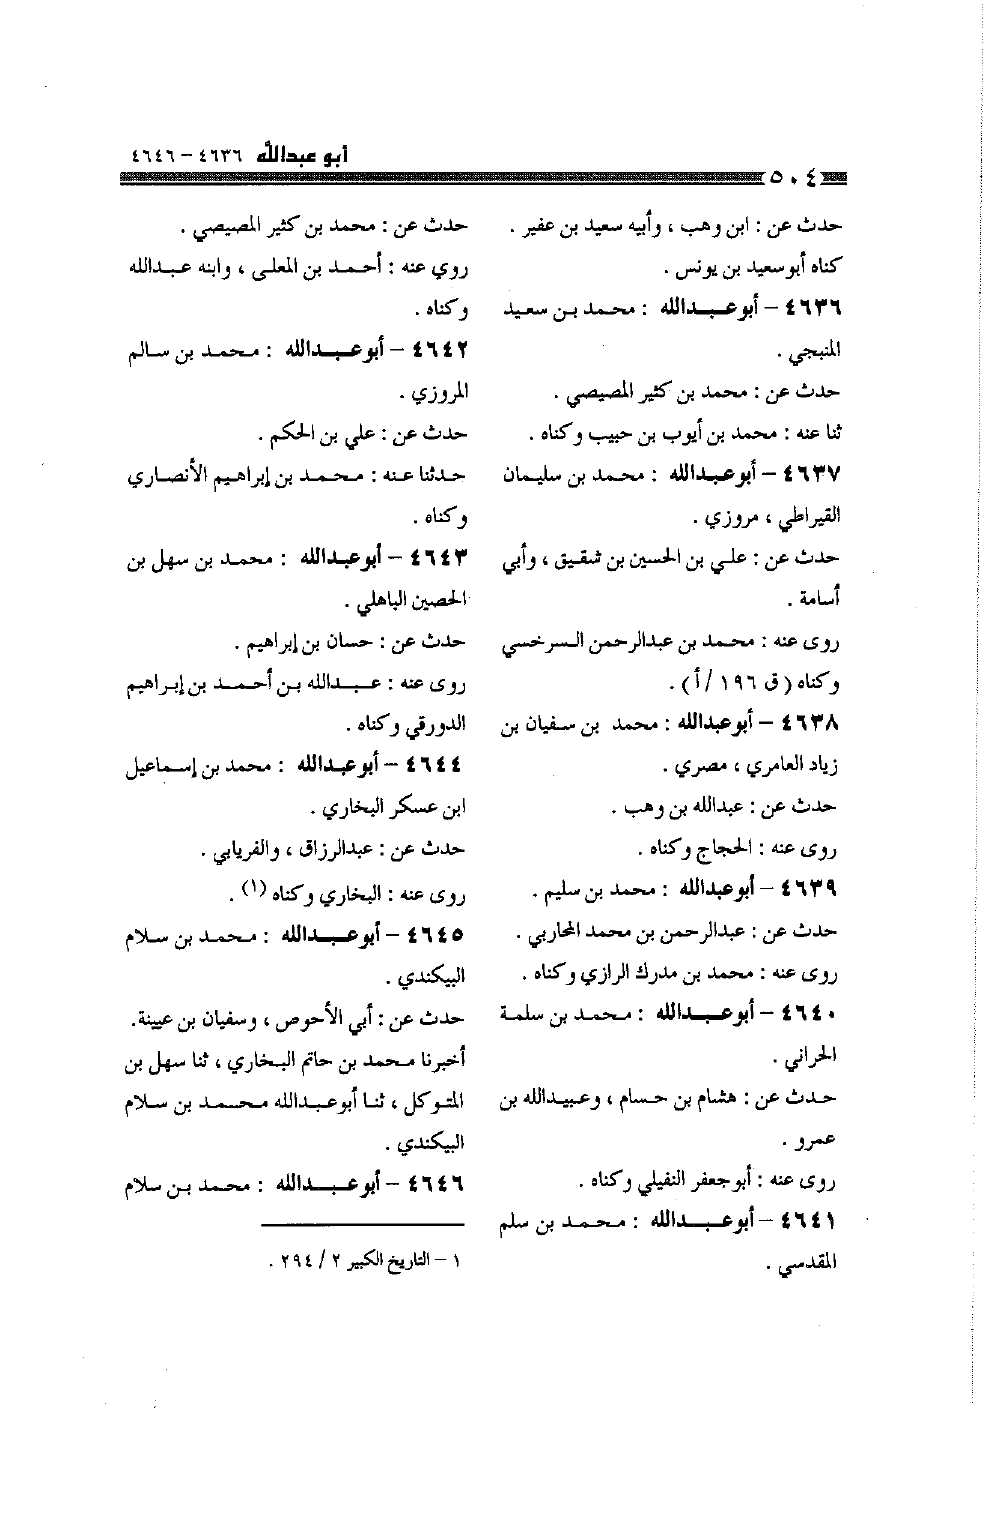 أبو عبدالله ٤٦٣٦ – ٤٦٤٦
٥٠٤
حدث عن : ابن وهب ، وأبيه سعيد بن عفير .
كناه أبو سعيد بن يونس .
٤٦٣٦ – أبو عبدالله : محمد بن سعيد
المنبجي .
حدث عن : محمد بن كثير المصيصي .
ثنا عنه : محمد بن أيوب بن حبيب وكناه .
٤٦٣٧ – أبو عبدالله : محمد بن سليمان
القيراطي ، مروزي .
حدث عن : علي بن الحسين بن شقيق ، وأبي
أسامة .
روى عنه : محمد بن عبدالرحمن السرخسي
وكناه ( ق ١٩٦ /أ ) .
٤٦٣٨ – أبو عبدالله : محمد بن سفيان بن
زياد العامري ، مصري .
حدث عن : عبدالله بن وهب .
روى عنه : الحجاج وكناه .
٤٦٣٩ – أبو عبدالله : محمد بن سليم .
حدث عن : عبدالرحمن بن محمد المحاربي .
روى عنه : محمد بن مدرك الرازي وكناه .
٤٦٤٠ – أبو عبدالله : محمد بن سلمة
الحراني .
حدث عن : هشام بن حسام ، وعبيدالله بن
عمرو .
روى عنه : أبو جعفر النفيلي وكناه .
٤٦٤١ – أبو عبدالله : محمد بن سلم
المقدسي .
حدث عن : محمد بن كثير المصيصي .
روي عنه : أحمد بن المعلى ، وابنه عبدالله
وكناه .
٤٦٤٢ – أبو عبدالله : محمد بن سالم
المروزي .
حدث عن : علي بن الحكم .
حدثنا عنه : محمد بن إبراهيم الأنصاري
وكناه .
٤٦٤٣ – أبو عبدالله : محمد بن سهل بن
الحصين الباهلي .
حدث عن : حسان بن إبراهيم .
روى عنه : عبدالله بن أحمد بن إبراهيم
الدورقي وكناه .
٤٦٤٤ – أبو عبدالله : محمد بن إسماعيل
ابن عسكر البخاري .
حدث عن : عبدالرزاق ، والفريابي .
روى عنه : البخاري وكناه (١) .
٤٦٤٥ – أبو عبدالله : محمد بن سلام
البيكندي .
حدث عن : أبي الأحوص ، وسفيان بن عيينة.
أخبرنا محمد بن حاتم البخاري ، ثنا سهل بن
المتوكل ، ثنا أبو عبدالله محمد بن سلام
البيكندي .
٤٦٤٦ – أبو عبدالله : محمد بن سلام
١ – التاريخ الكبير ٢ / ٢٩٤ .